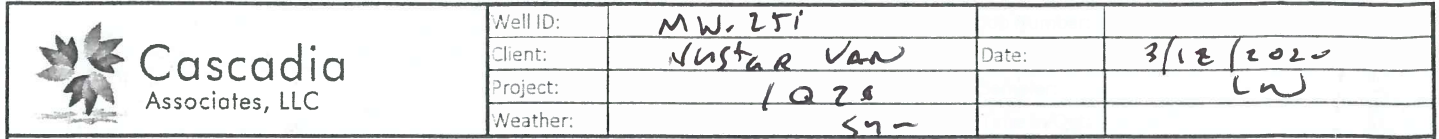 Cascadia
Associates, LLC
Well ID: MW-25i
Client: NuStar VAN Date: 3/12/2020
Project: 1Q20
Weather: Sun